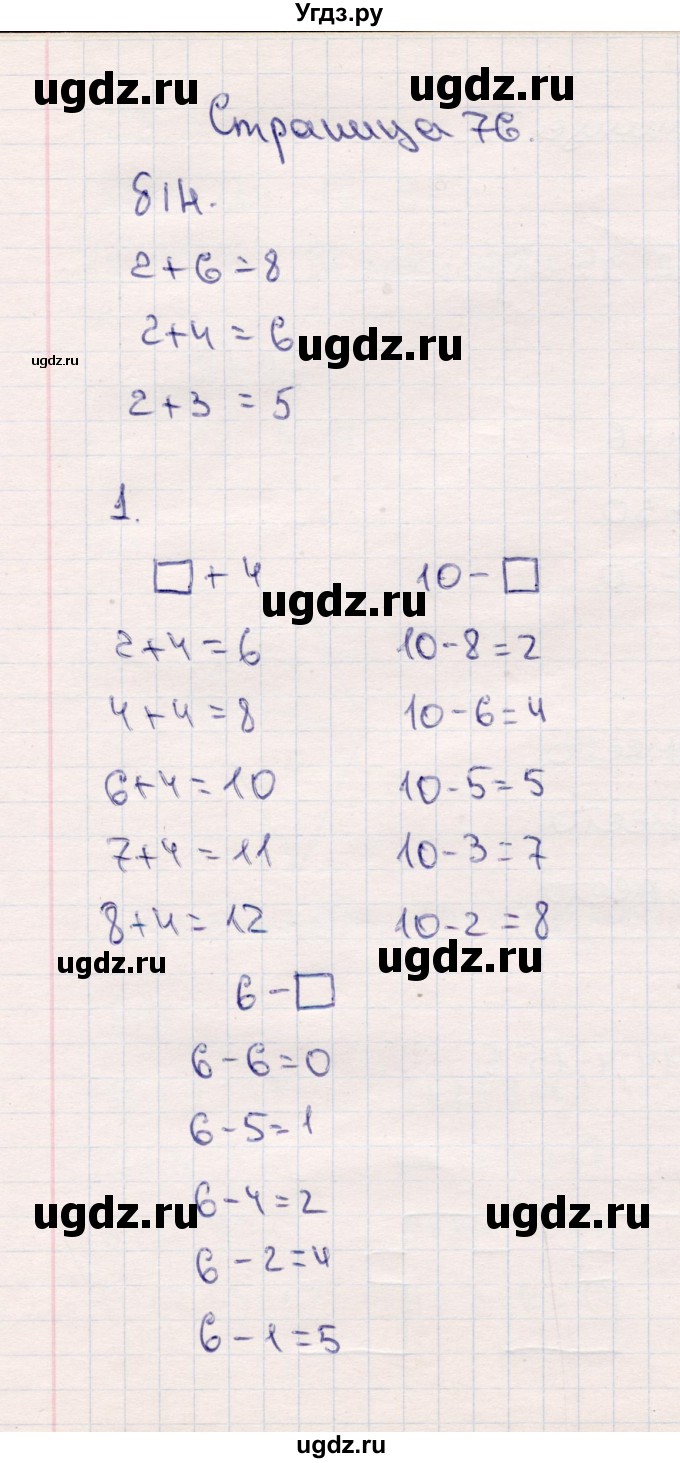 Угдз.ру
ugdz.ru ugdz.ru
Страница 76.
81н.
2+6=8
2+4=6
ugdz.ru
ugdz.ru
2+3=5
1.
□+4 10-□
ugdz.ru
2+4=6 10-8=2
4+4=8 10-6=4
6+4=10 10-5=5
7+4=11 10-3=7
8+4=12 10-2=8
ugdz.ru ugdz.ru
6-□
6-6=0
6-5=1
6-4=2
ugdz.ru ugdz.ru
6-2=4
6-1=5
ugdz.ru